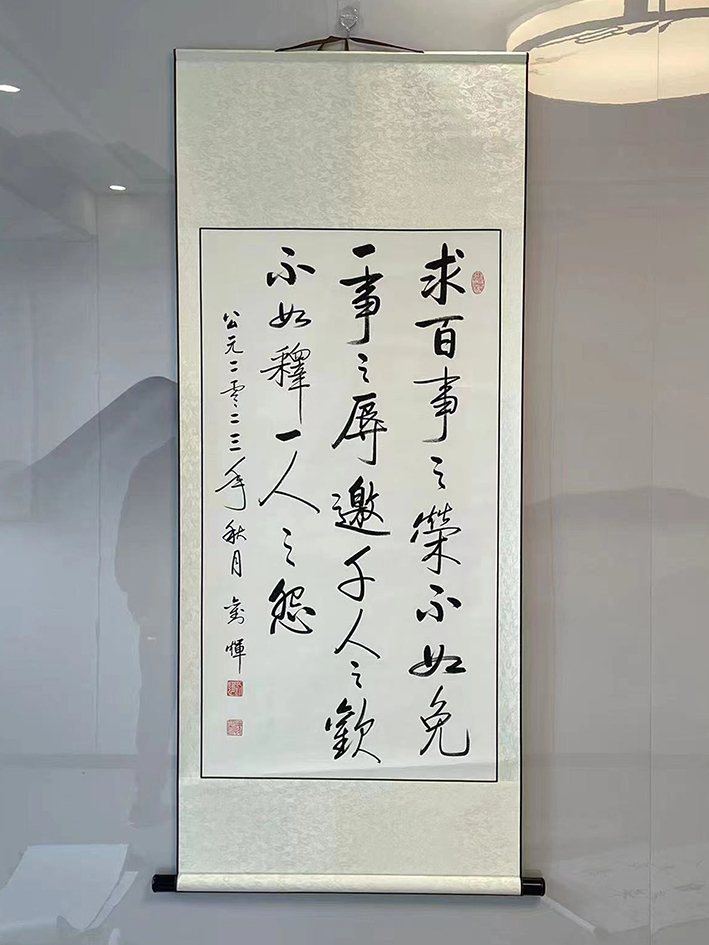 求百事之榮不如免
一事之辱邀千人之歡
不如釋一人之怨
公元二零二三年秋月